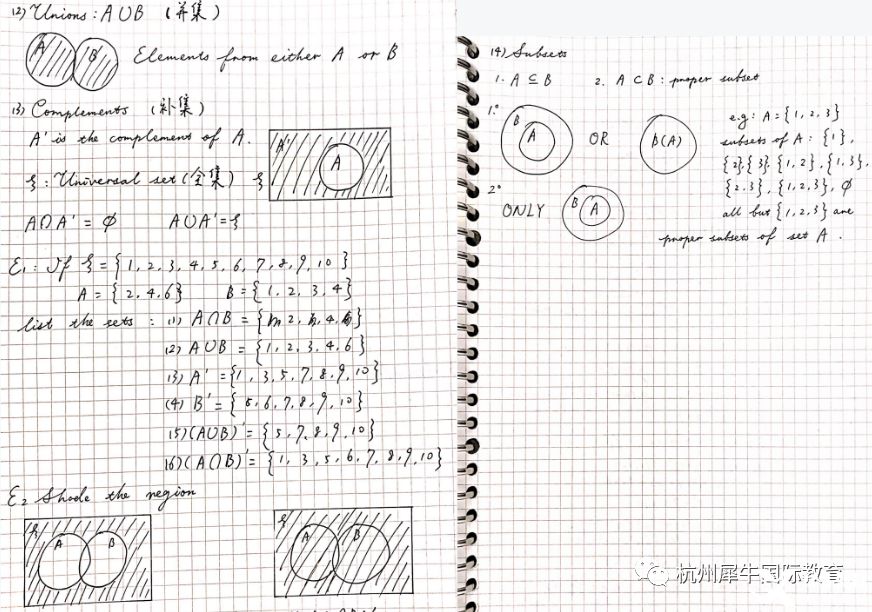 (2) Unions: A∪B (并集)
A B Elements from either A or B
(3) Complements (补集)
A' is the complement of A.
A' A
ξ: Universal set (全集) ξ
A∩A' = ∅ A∪A' = ξ
E1: If ξ = { 1, 2, 3, 4, 5, 6, 7, 8, 9, 10 }
A = { 2, 4, 6 } B = { 1, 2, 3, 4 }
list the sets: (1) A∩B = { 2, 4 }
(2) A∪B = { 1, 2, 3, 4, 6 }
(3) A' = { 1, 3, 5, 7, 8, 9, 10 }
(4) B' = { 5, 6, 7, 8, 9, 10 }
(5) (A∪B)' = { 5, 7, 8, 9, 10 }
(6) (A∩B)' = { 1, 3, 5, 6, 7, 8, 9, 10 }
E2 Shade the region
ξ A B
ξ A B
(4) Subsets
1. A ⊆ B 2. A ⊂ B: proper subset
1° B A OR B(A)
e.g: A = { 1, 2, 3 }
subsets of A: { 1 },
{ 2 }, { 3 }, { 1, 2 }, { 1, 3 },
{ 2, 3 }, { 1, 2, 3 }, ∅
2° ONLY B A
all but { 1, 2, 3 } are
proper subsets of set A.
杭州犀牛国际教育